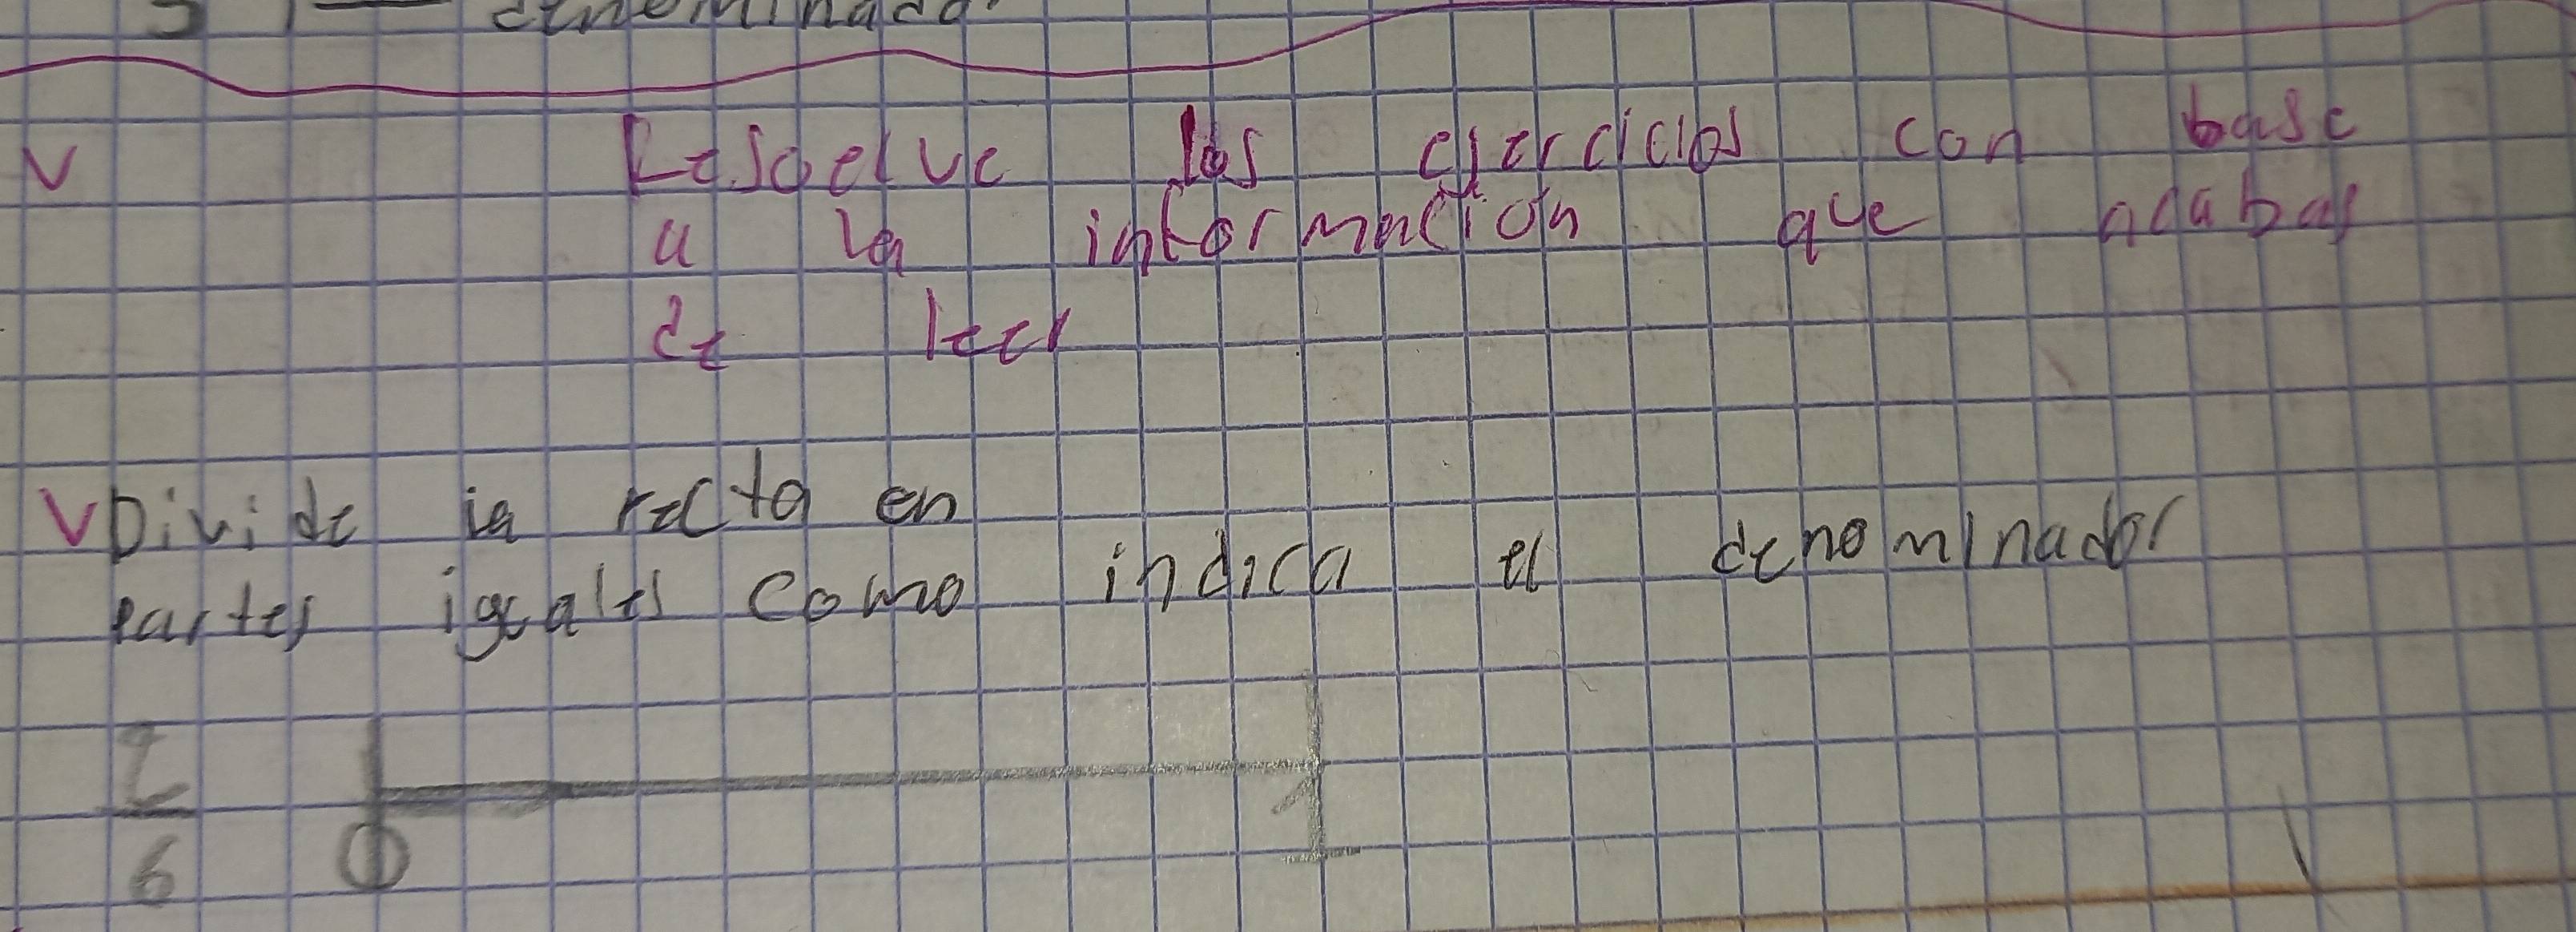 5 denominador
Resuelve los ejercicios con base
a la información que acabas
de leer
Divide la recta en
partes iguales como indica el denominador
2
6
0 1